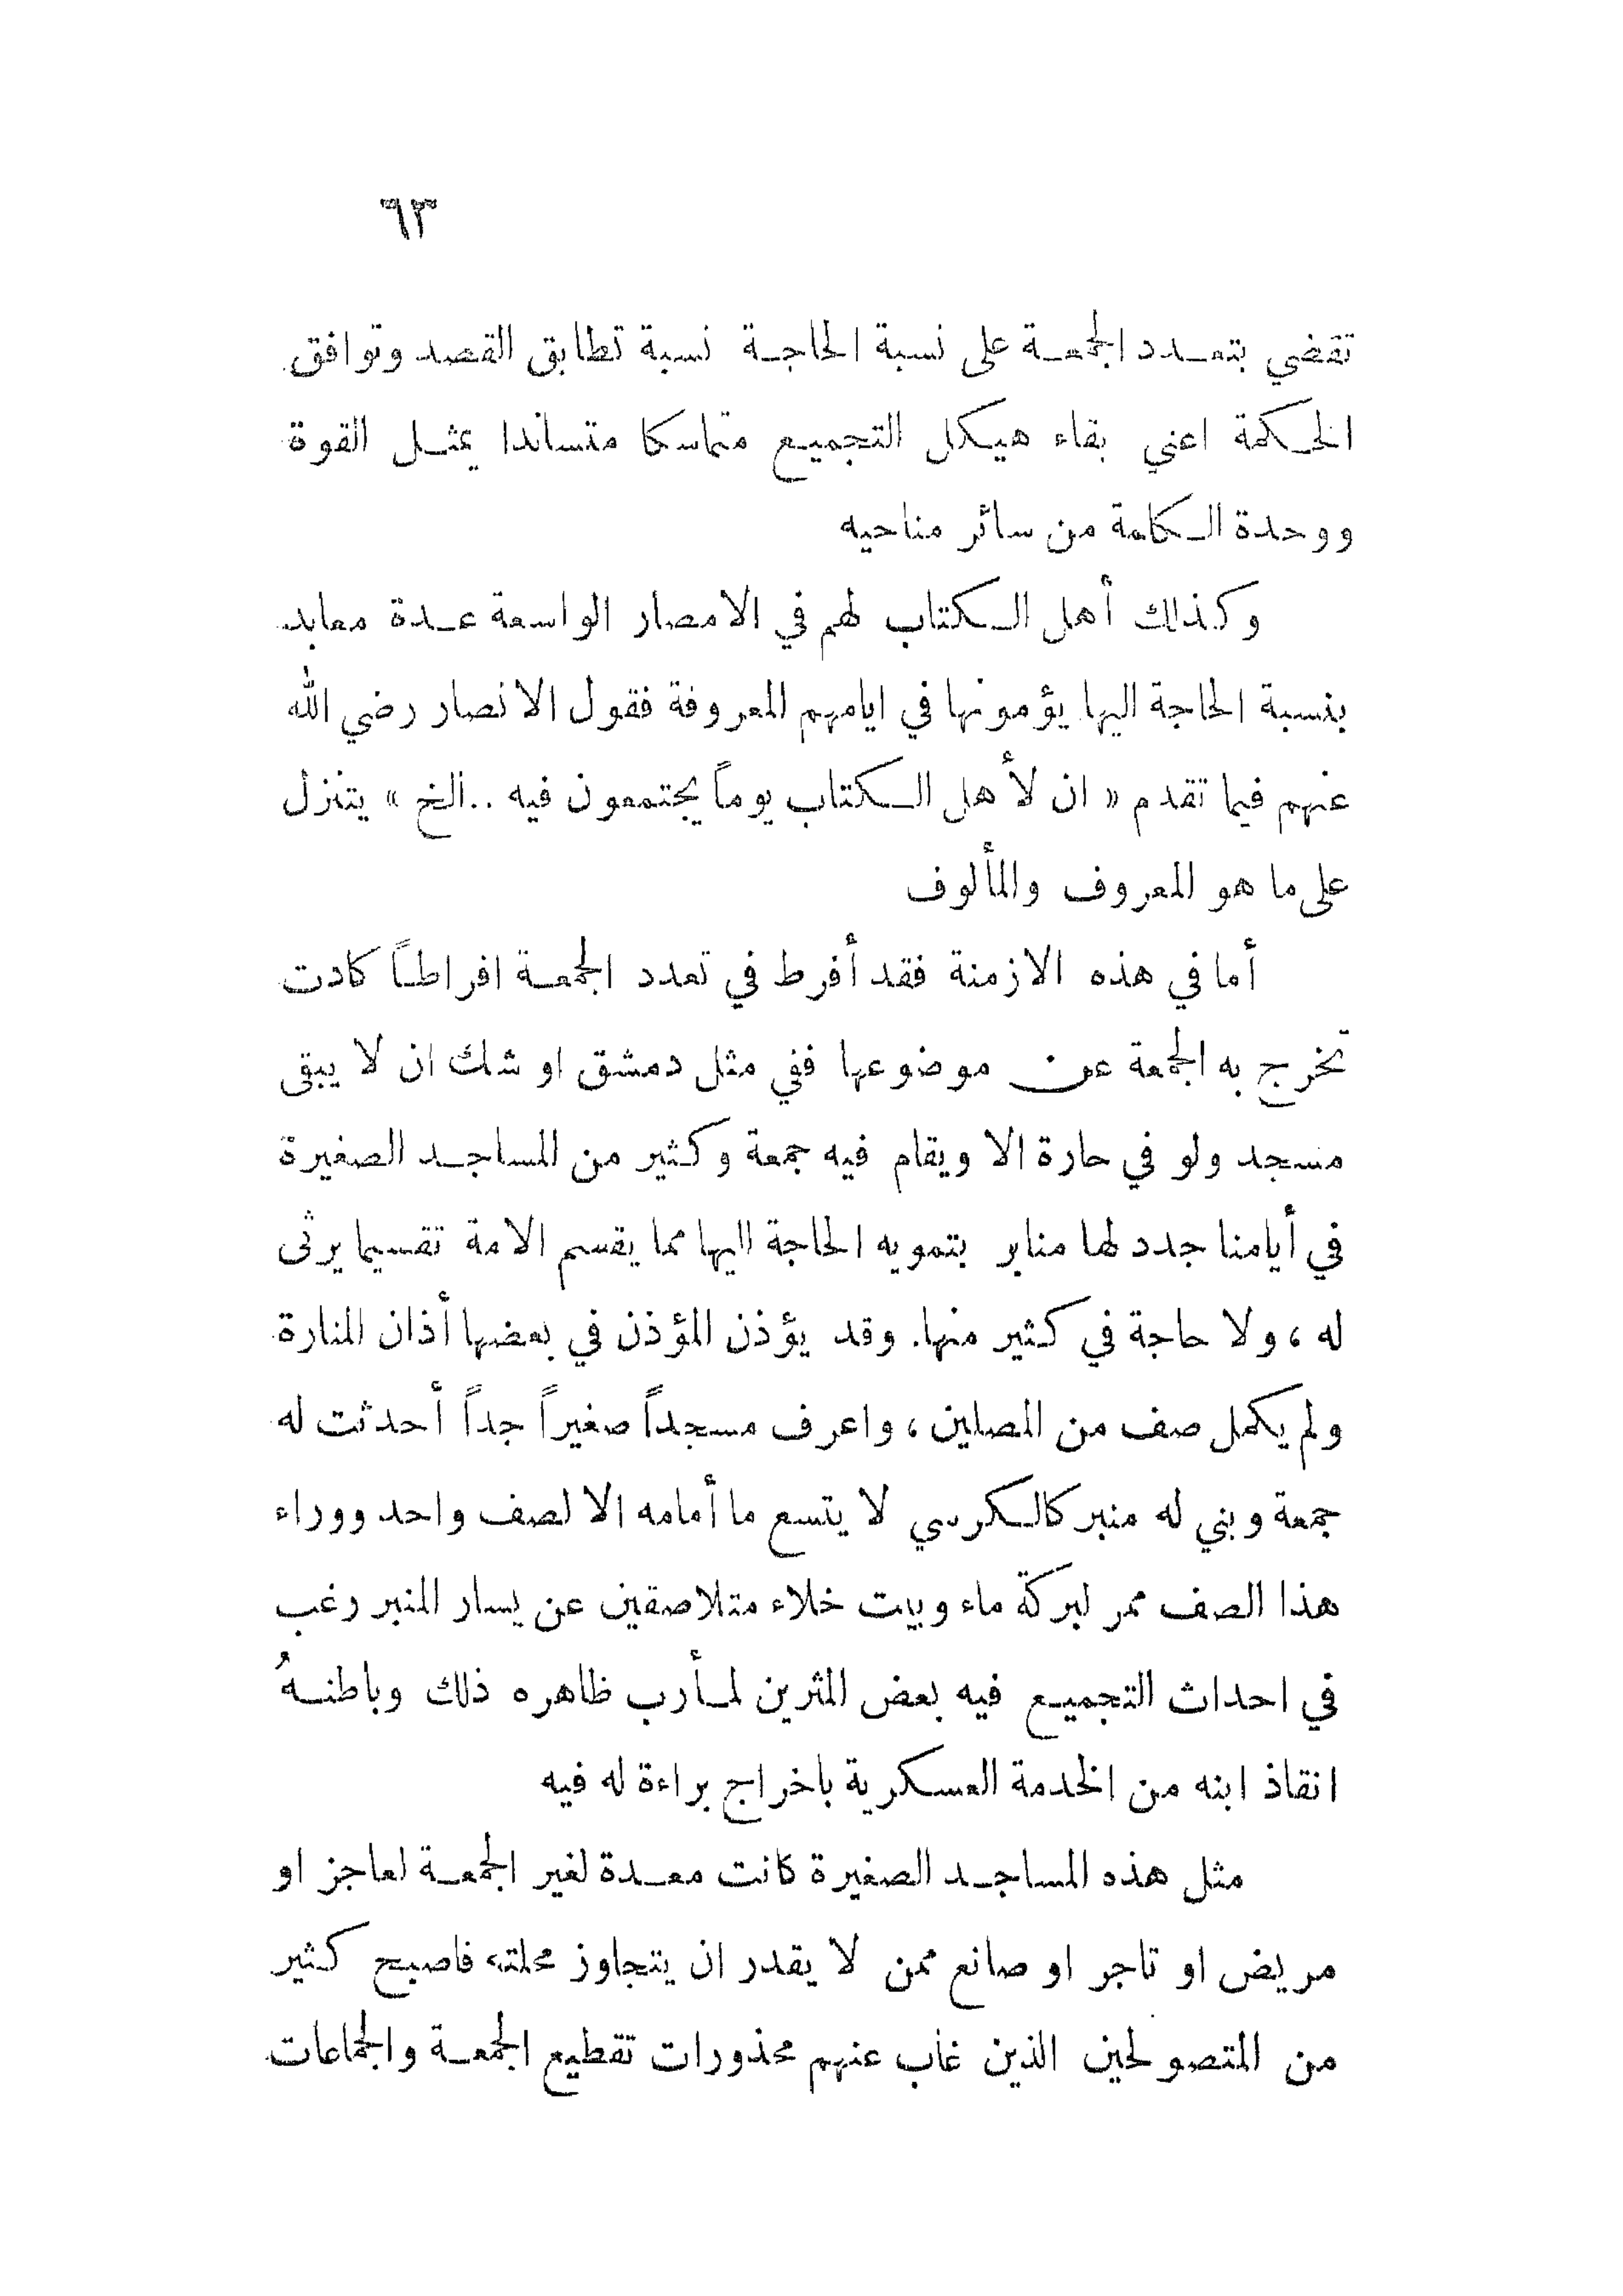 ٦٣
تقضي بتعدد الجمعة على نسبة الحاجة نسبة تطابق القصد وتوافق
الحكمة اعني بقاء هيكل التجميع متماسكا متساندا يمثل القوة
ووحدة الكلمة من سائر مناحيه
وكذلك أهل الكتاب لهم في الامصار الواسعة عدة معابد
بنسبة الحاجة اليها يؤمونها في ايامهم المعروفة فقول الانصار رضي الله
عنهم فيما تقدم « ان لأهل الكتاب يوماً يجتمعون فيه ..الخ » يتنزل
على ما هو المعروف والمألوف
أما في هذه الازمنة فقد أفرط في تعدد الجمعة افراطاً كادت
تخرج به الجمعة عن موضوعها ففي مثل دمشق او شك ان لا يبقى
مسجد ولو في حارة الا ويقام فيه جمعة وكثير من المساجد الصغيرة
في أيامنا جدد لها منابر بتمويه الحاجة اليها مما يقسم الامة تقسيما يرثى
له ، ولا حاجة في كثير منها. وقد يؤذن المؤذن في بعضها أذان المنارة
ولم يكمل صف من المصلين ، واعرف مسجداً صغيراً جداً أحدثت له
جمعة وبني له منبر كالكرسي لا يتسع ما أمامه الا لصف واحد ووراء
هذا الصف ممر لبركة ماء وبيت خلاء متلاصقين عن يسار المنبر رغب
في احداث التجميع فيه بعض المثرين لمأرب ظاهره ذلك وباطنهُ
انقاذ ابنه من الخدمة العسكرية باخراج براءة له فيه
مثل هذه المساجد الصغيرة كانت معدة لغير الجمعة لعاجز او
مريض او تاجر او صانع ممن لا يقدر ان يتجاوز محلته فاصبح كثير
من المتصولحين الذين غاب عنهم محذورات تقطيع الجمعة والجماعات